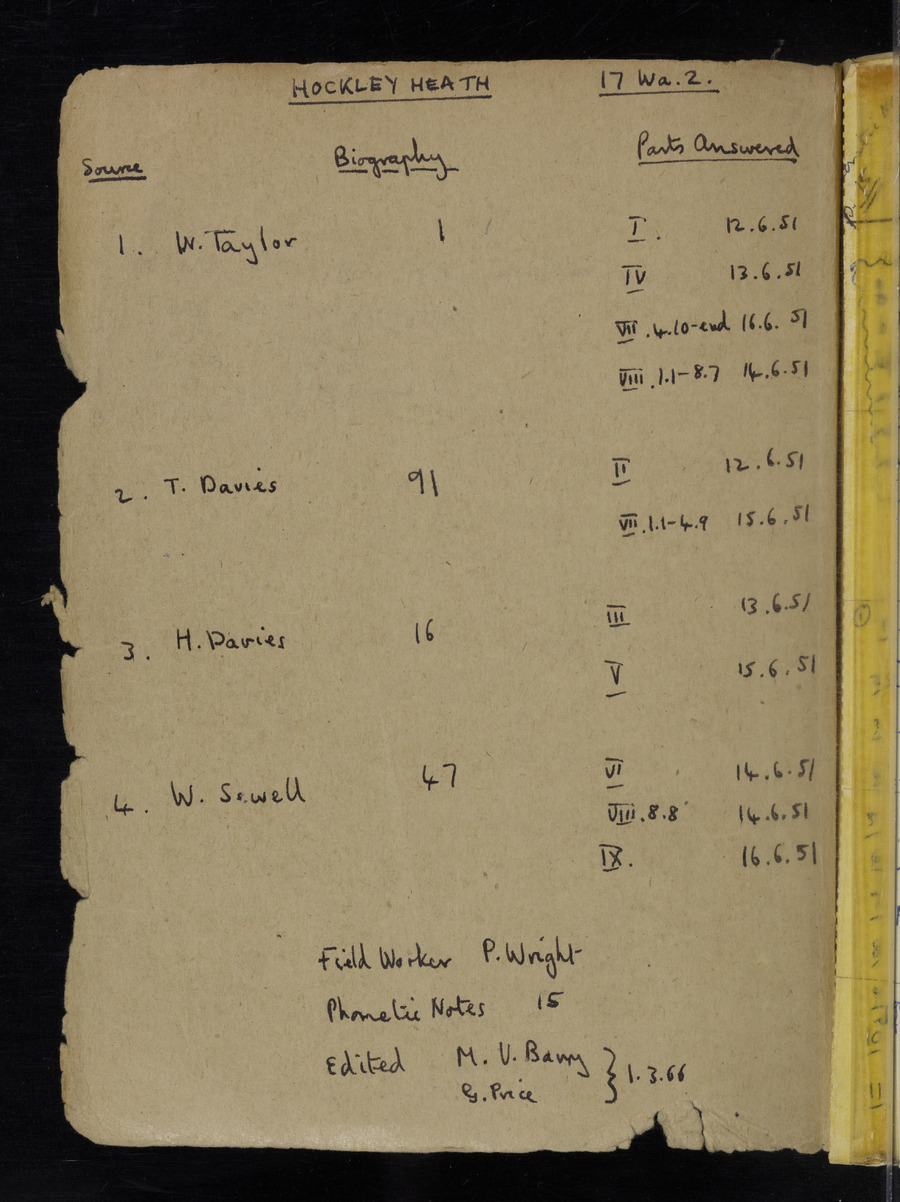 HOCKLEY HEATH 17 Wa.2.
Source Biography Parts Answered
1. W. Taylor 1 I. 12.6.51
IV 13.6.51
VII.4.10-end 16.6.51
VIII.1.1-8.7 14.6.51
2. T. Davies 91 II 12.6.51
VII.1.1-4.9 15.6.51
3. H. Davies 16 III 13.6.51
V 15.6.51
4. W. Sewell 47 VI 14.6.51
VIII.8.8 14.6.51
IX. 16.6.51
Field Worker P. Wright
Phonetic Notes 15
Edited M. V. Barry } 1.3.66
G. Price